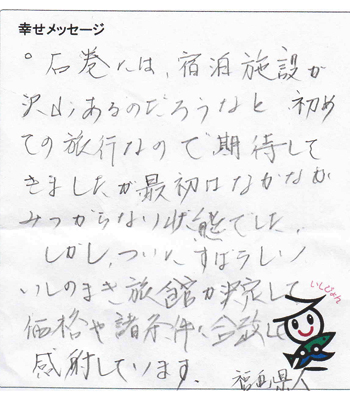 幸せメッセージ
。石巻には、宿泊施設が
沢山あるのだろうなと 初め
ての旅行なので期待して
きましたが最初はなかなか
みつからない状態でした。
しかし、ついに すばらしい
いしのまき旅館が決定して
いしぴょん
価格や諸条件に合致して
感射しています。
福島県人